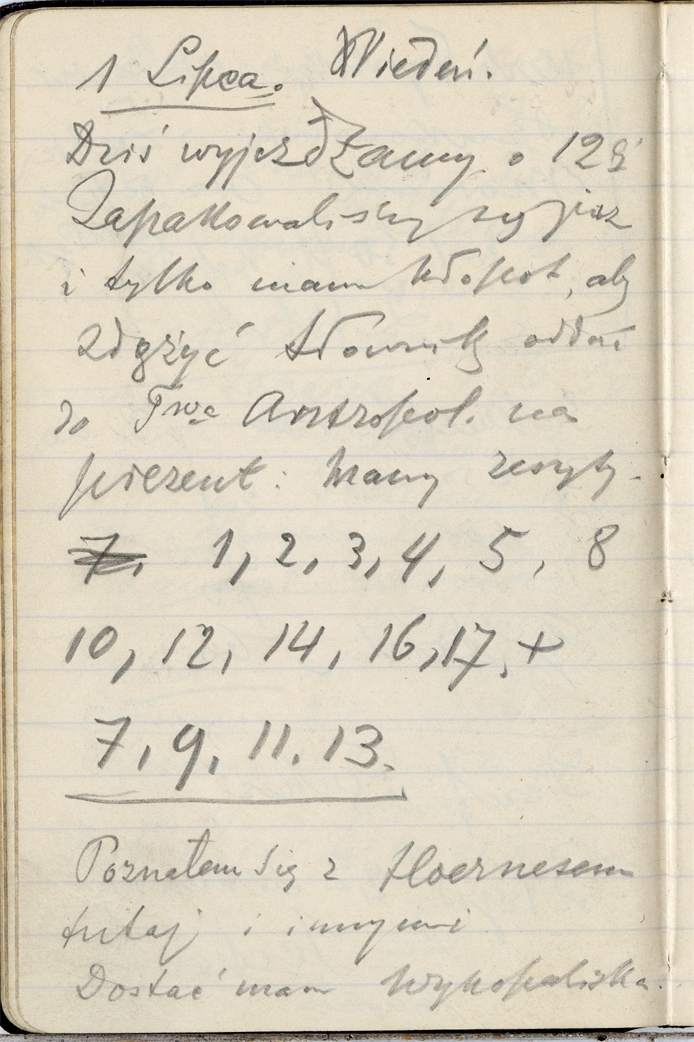 1 Lipca. Wiedeń.
Dziś wyjeżdżamy o 12
Zapakowaliśmy się już
i tylko mam kłopot, aby
zdążyć słownik oddać
do Twa Antropol. na
prezent: Mamy zeszyty.
7, 1, 2, 3, 4, 5, 8
10, 12, 14, 16, 17, +
7, 9, 11. 13.
Poznałem się z Hoernesem
tutaj i innymi
Dostać mam wykopaliska.